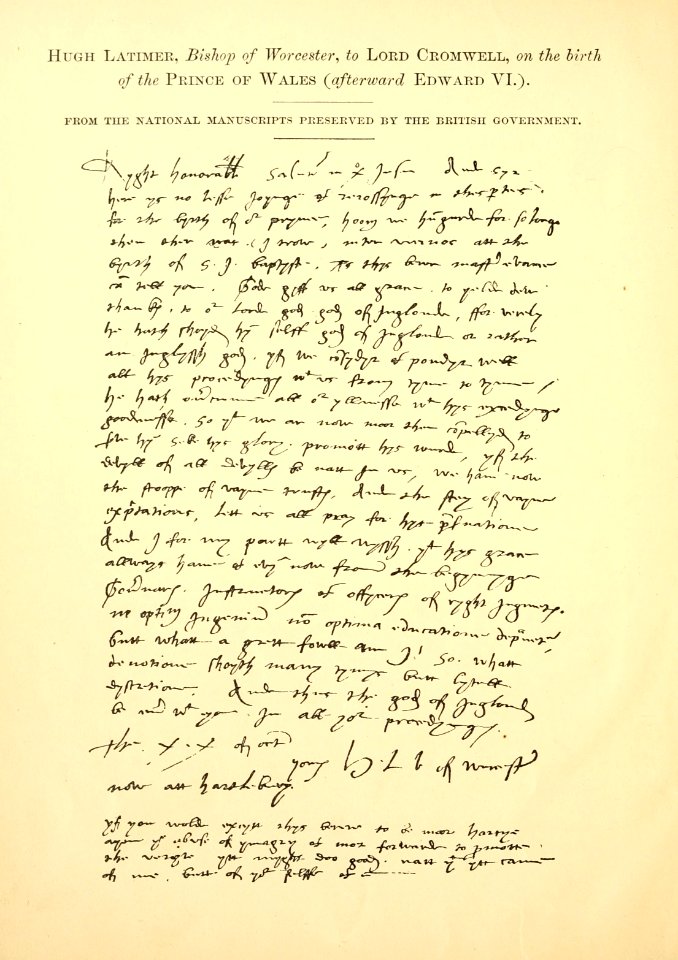 HUGH LATIMER, Bishop of Worcester, to LORD CROMWELL, on the birth
of the PRINCE OF WALES (afterward EDWARD VI.).
FROM THE NATIONAL MANUSCRIPTS PRESERVED BY THE BRITISH GOVERNMENT.
Ryght honorable Salutem in χ Jesu And syr
here ys no lesse Joynge & reiossynge in thes partes
for the byrth of our prynce, hoom we hungurde for so longe
then ther was (I trow, inter vicinos att the
byrth of S. J. baptyste, as thys berer master evance
can tell you. Gode gyff us all grace, to yelde dew
thankes, to our lord god god of Inglonde, ffor verely
he hath shoyd hym selff god of Inglond or rather
an Inglyssh god, yf we consydyr & pondyr well
all hys procedynges with us from tyme to tyme /
he hath overcumme all our yllnesse with hys excedynge
goodnesse, so that we ar now moor then compellyd to
serve hym, seke hys glory, promott hys wurd, yf the
devyll of all devylls be natt in us, we have now
the stooppe of vayne trustes, And the stey of vayne
expectations, lett us all pray for hys preservatione
And I for my partt wyll wyssh, that hys grace
allways have & evyn now from the begynynge
Governares, Instructores & offycers of ryght Jugmente.
ne optimum Ingenium non optima educatione depravetur,
butt whatt a grett fowll am I! So, whatt
devotione shoyth many tymys butt lytell
dyscretione, And thus the god of Inglond
be ever with you in all your procedynges.
the. x. x of octr
yours H. L. b of wurcester
now att hartlebury.
yf you wold excytt thys berer to be moor hartye
ayen the abuse of ymagry & mor forwarde to promotte
the veryte ytt myght doo good. natt that ytt came
of me, butt of your selffe &c